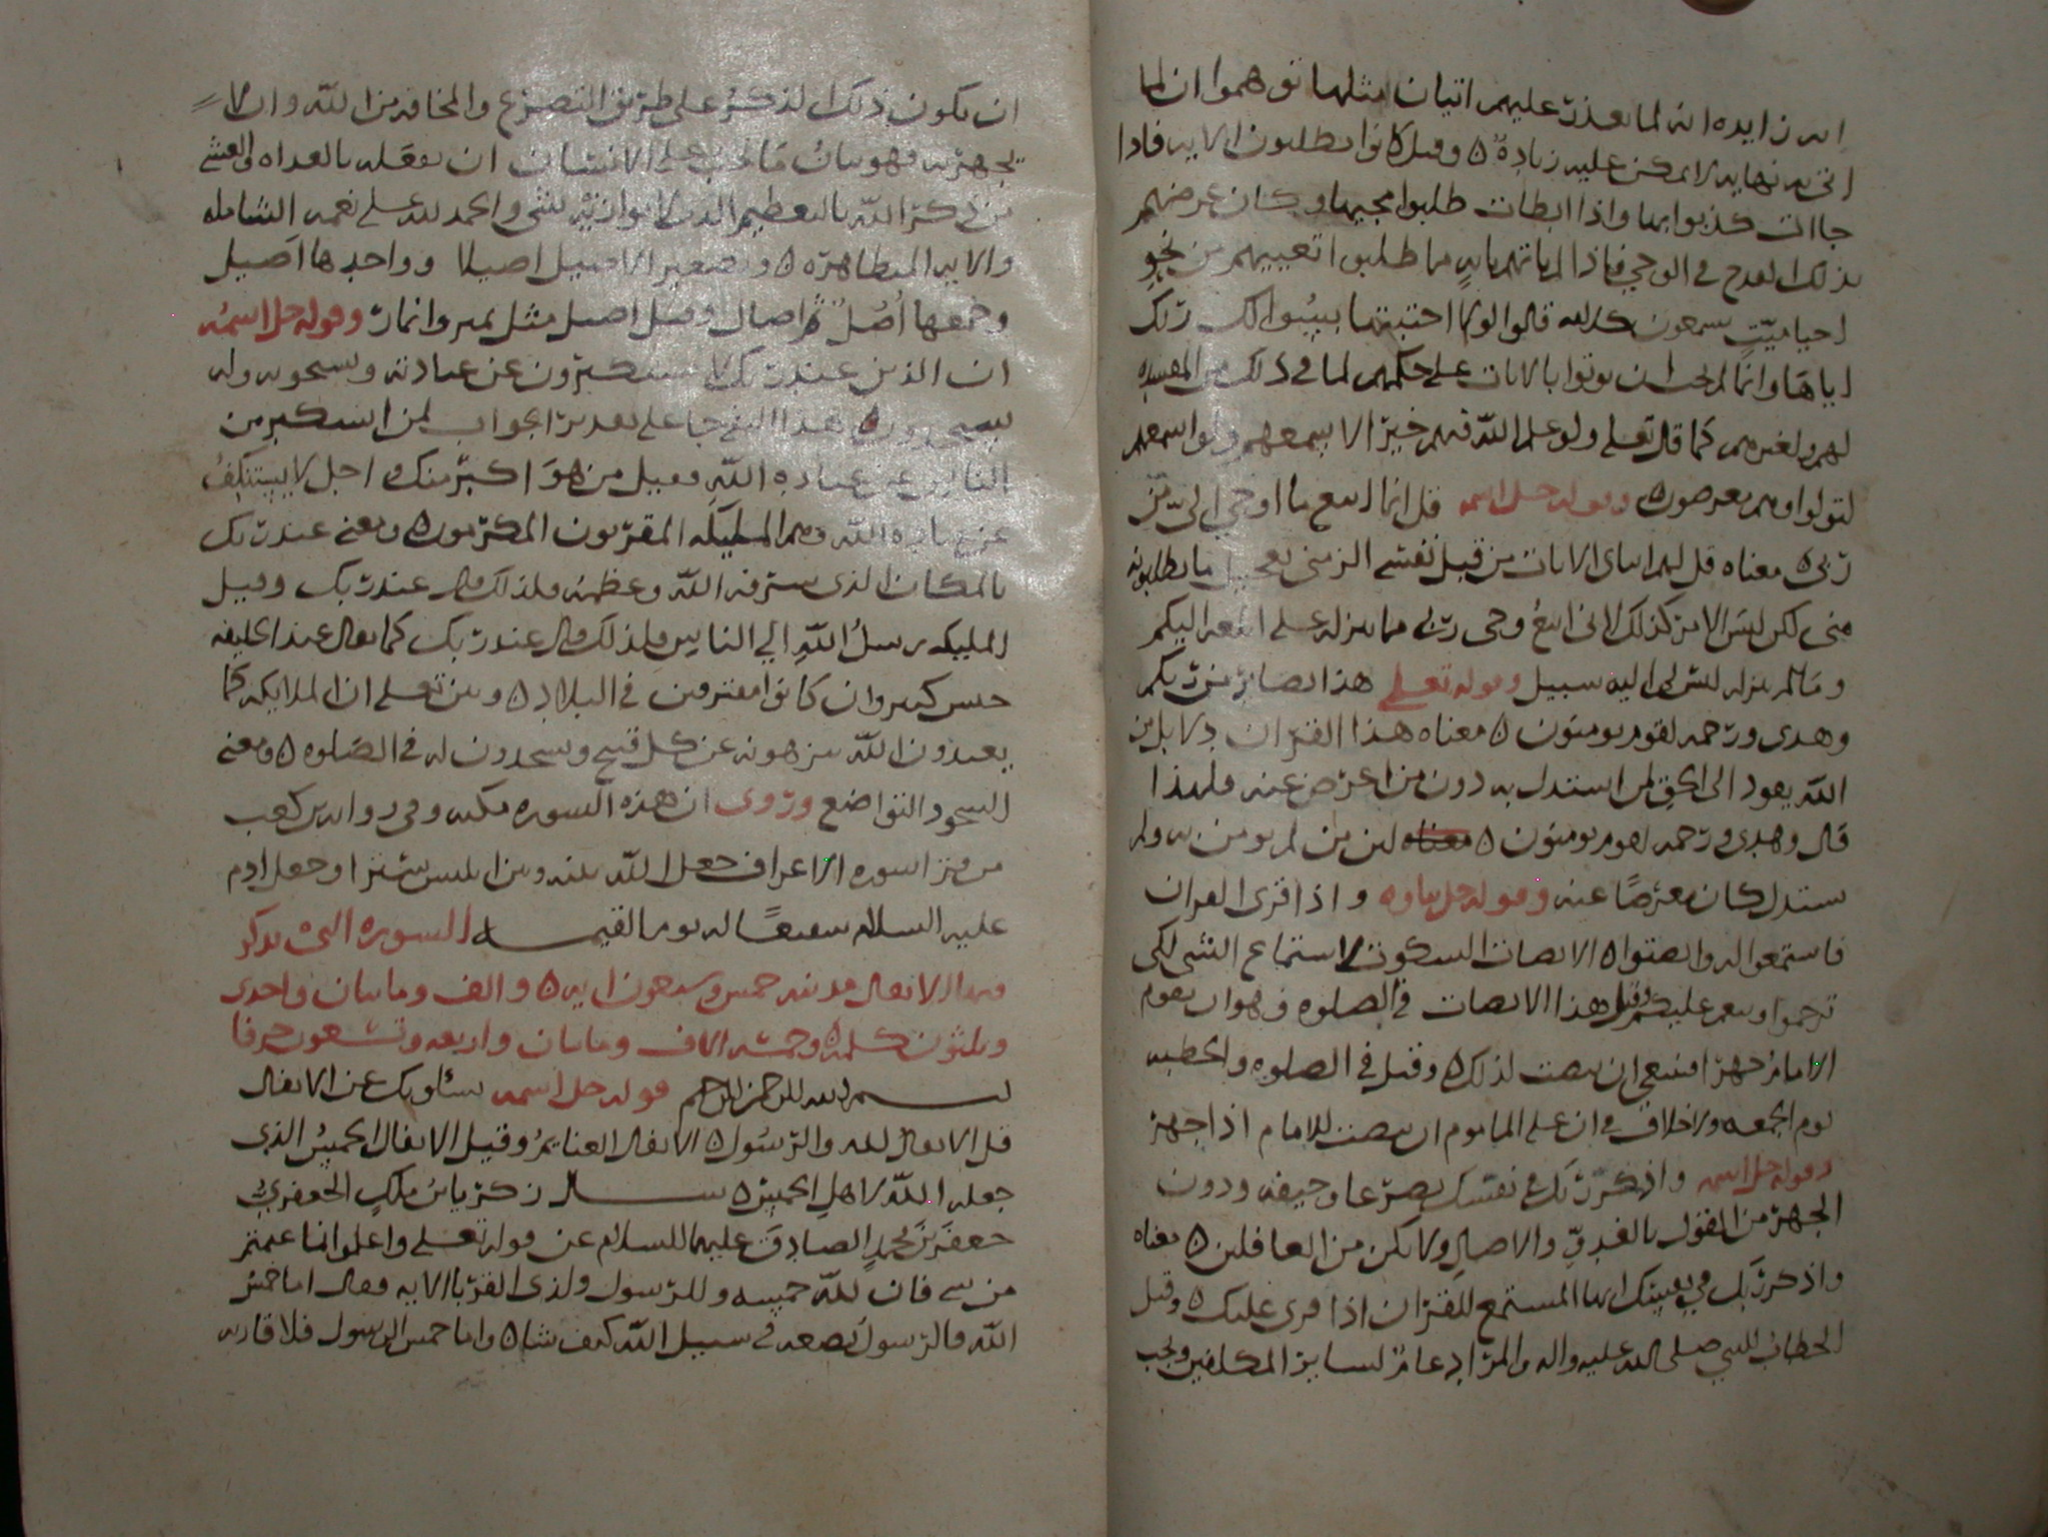 انه لما تعذر عليهم اتيان مثلها توهموا ان لها
نهايه لا يمكن عليه زيادة ٥ وقيل كانوا يطلبون الايه فاذا
جاات كذبوا بها واذا ابطات طلبوا مجيها وكان غرضهم
بذلك القدح في الوحي فاذا لم ياتهم بايه مما طلبوا تعييهم من نحو
احيا ميت يسمعون كلامه قالوا لولا اجتبيتها ربك
اياها وانما لم يحب ان يوتوا بالايات على حكمهم لما في ذلك من المفسده
لهم ولغيرهم كما قال تعلى ولو علم الله فيهم خيرا لاسمعهم ولو اسمعهم
لتولوا وهم معرضون ٥ وقوله جل اسمه قل انما اتبع ما اوحي الي من
ربي ٥ معناه قل لهم اتياني الايات من قبل نفسي الزمني تعجيل ما يطلبونه
مني لكن ليس الامر كذلك لاني اتبع وحي ربي مما ينزله علي اليكم
وما لم ينزله ليس لي اليه سبيل وقوله تعلى هذا بصاير من ربكم
وهدى ورحمه لقوم يومنون ٥ معناه هذا القران دلايل من
الله يعود الى الحق لمن استدل به دون من اعرض عنه فلهذا
قال وهدى ورحمه لقوم يومنون ٥ معناه لان من لم يومن به ولم
يستدل كان معرضًا عنه وقوله جل ثناوه واذا قرى القران
فاستمعوا له وانصتوا ٥ الانصات السكوت لاستماع الشي لكي
ترحموا وقيل هذا الانصات في الصلوه وهو ان يقوم
الامام جهرا فينبغي ان ينصت لذلك ٥ وقيل في الصلوه والخطبه
يوم الجمعه ولا خلاف في ان على الماموم ان ينصت للامام اذا جهر
وقوله جل اسمه واذكر ربك في نفسك تضرعا وخيفه ودون
الجهر من القول بالغدوِّ والاصالِ ولا تكن من الغافلين ٥ معناه
واذكر ربك في نفسك ايها المستمع للقران اذا قرى عليك ٥ وقيل
الخطاب للنبي صلى الله عليه واله والمراد عامة لساير المكلفين ويجب
ان يكون ذلك الذكر على طريق التضرع والمخافه من الله وان لا
يجهر به فهو بيان ما يجب على الانسان ان يفعله بالغداه والعشي
من ذكر الله بالتعظيم والحمد لله على نعمه الشامله
والايه المتظاهره ٥ وتصغير الاصيل اصيلا وواحدها اصيل
وجمعها اُصُل ثم اصال وقيل اصيل مثل يمين وايمان وقوله جل اسمه
ان الذين عند ربك لا يستكبرون عن عبادته ويسبحونه وله
يسجدون ٥ هذا النفي جا على تقدير الجواب لمن استكبر من
الناس عن عباده الله فقيل من هو اكبر منك واجل لا يستنكف
عن عباده الله وهم المليكه المقربون المكرمون ٥ ومعنى عند ربك
بالمكان الذي شرفه الله وعظمه فلذلك قال عند ربك وقيل
المليكه رسلُ اللهِ الي الناس فلذلك قال عند ربك كما يقال عند الخليفه
جيش كبير وان كانوا مفترقين في البلاد ٥ وبين تعلى ان الملايكه كما
يعبدون الله ينزهونه عن كل قبيح ويسجدون له في الصلوه ٥ ومعنى
السجود التواضع وروى ان هذه السوره مكيه وفي روايه بن كعب
من قرا سوره الاعراف جعل الله بينه وبين ابليس سترا وجعل ادم
عليه السلام شفيعًا له يوم القيمه السوره التى يذكر
فيها الانفال مدنيه خمس وسبعون ايه ٥ والف ومايتان واحدى
وثلثون كلمه ٥ وخمسه الاف ومايتان واربعه وتسعون حرفا
بسم الله الرحمن الرحيم قوله جل اسمه يسئلونك عن الانفال
قل الانفال لله والرسول ٥ الانفال الغنايمُ وقيل الانفال الخمسُ الذي
جعله الله لاهل الخمس ٥ سال زكريا بن ملك الجعفري
جعفر بن محمد الصادق عليهما السلام عن قوله تعلى واعلموا انما غنمتم
من شي فان لله خمسه وللرسول ولذي القربا الايه فقال اما خمس
الله فالرسول يضعه في سبيل الله كيف شا ٥ واما خمس الرسول فلاقاربه